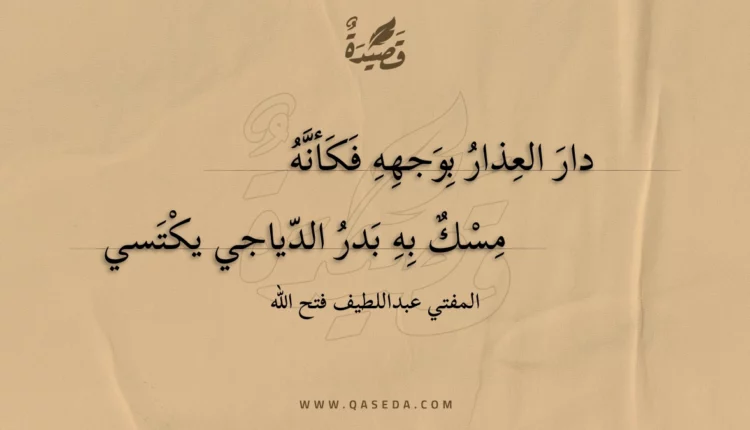 قَصِيْدَةٌ
دارَ العِذارُ بِوَجهِهِ فَكَأنَّهُ
مِسْكٌ بِهِ بَدرُ الدّياجي يكْتَسي
المفتي عبداللطيف فتح الله
WWW.QASEDA.COM